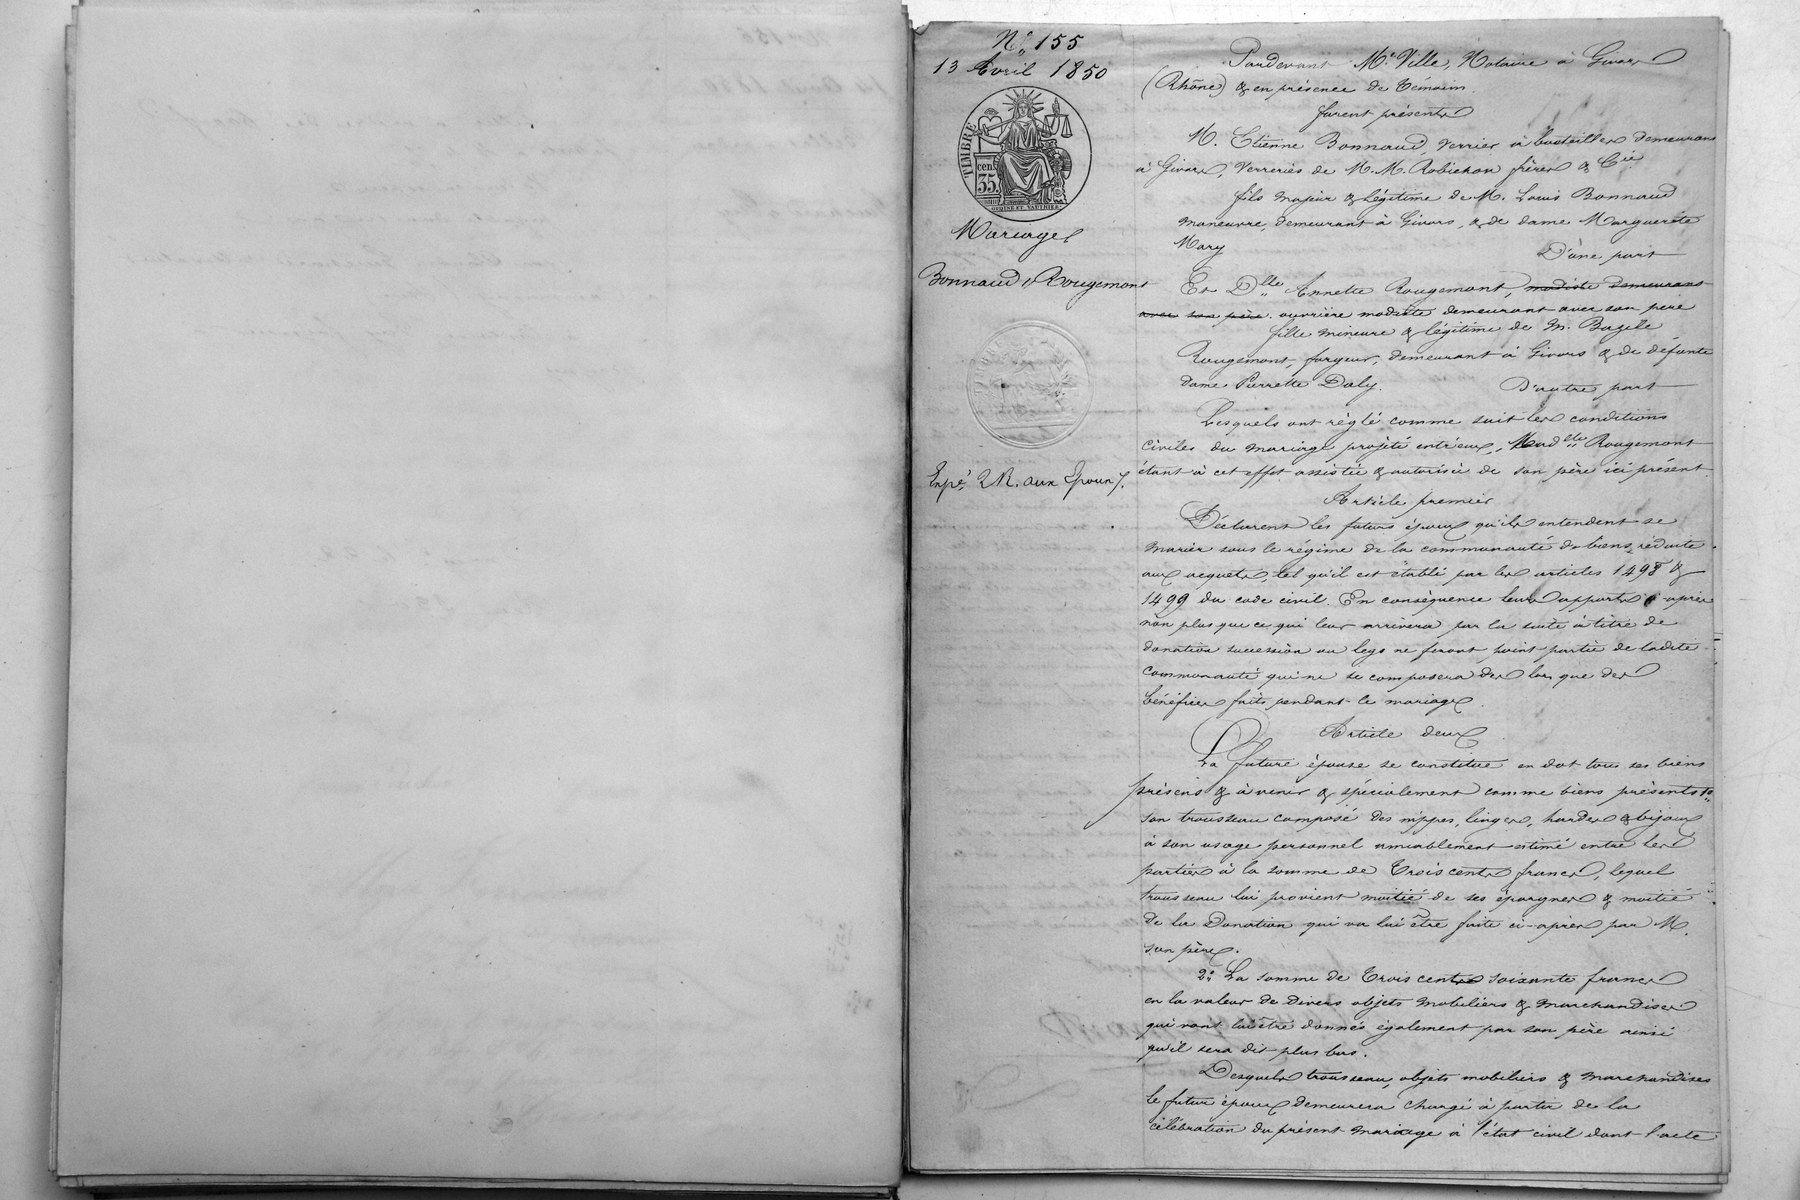 N° 155
13 Avril 1850
TIMBRE
cen.
35.
Mariage
Bonnaud & Rougemont
Expé. aux Epoux
Pardevant Me Ville, Notaire à Givors
(Rhône) & en présence de témoins.
furent présents
M. Etienne Bonnaud, verrier à bouteilles demeurant
à Givors, verreries de M.M. Robichon frères & Cie
fils majeur & légitime de M. Louis Bonnaud
manœuvre, demeurant à Givors, & de dame Marguerite
Mary D'une part
Et Dlle Annette Rougemont, modiste demeurant
avec son père. ouvrière modiste demeurant avec son père
fille mineure & légitime de M. Bazile
Rougemont, forgeur, demeurant à Givors & de défunte
dame Pierrette Daly. D'autre part
Lesquels ont réglé comme suit les conditions
civiles du mariage projeté entr'eux, Madlle Rougemont
étant à cet effet assistée & autorisée de son père ici présent
Article premier
Déclarent les futurs époux qu'ils entendent se
marier sous le régime de la communauté de biens réduite
aux acquets, tel qu'il est établi par les articles 1498 &
1499 du code civil. En conséquence leurs apports ci-après
non plus que ce qui leur arrivera par la suite à titre de
donation succession ou legs ne feront point partie de ladite
communauté qui ne se composera dès lors que des
bénéfices faits pendant le mariage.
Article deux
La future épouse se constitue en dot tous ses biens
présens & à venir & spécialement comme biens présents 1°
son trousseau composé des nippes, linges, hardes & bijoux
à son usage personnel amiablement estimé entre les
parties à la somme de Trois cents francs, lequel
trousseau lui provient moitié de ses épargnes & moitié
de la Donation qui va lui être faite ci-après par M.
son père.
2° La somme de Trois cents soixante francs
en la valeur de divers objets mobiliers & marchandises
qui vont lui être donnés également par son père ainsi
qu'il sera dit plus bas.
Desquels trousseau, objets mobiliers & marchandises
le futur époux demeurera chargé à partir de la
célébration du présent mariage à l'état civil dont l'acte